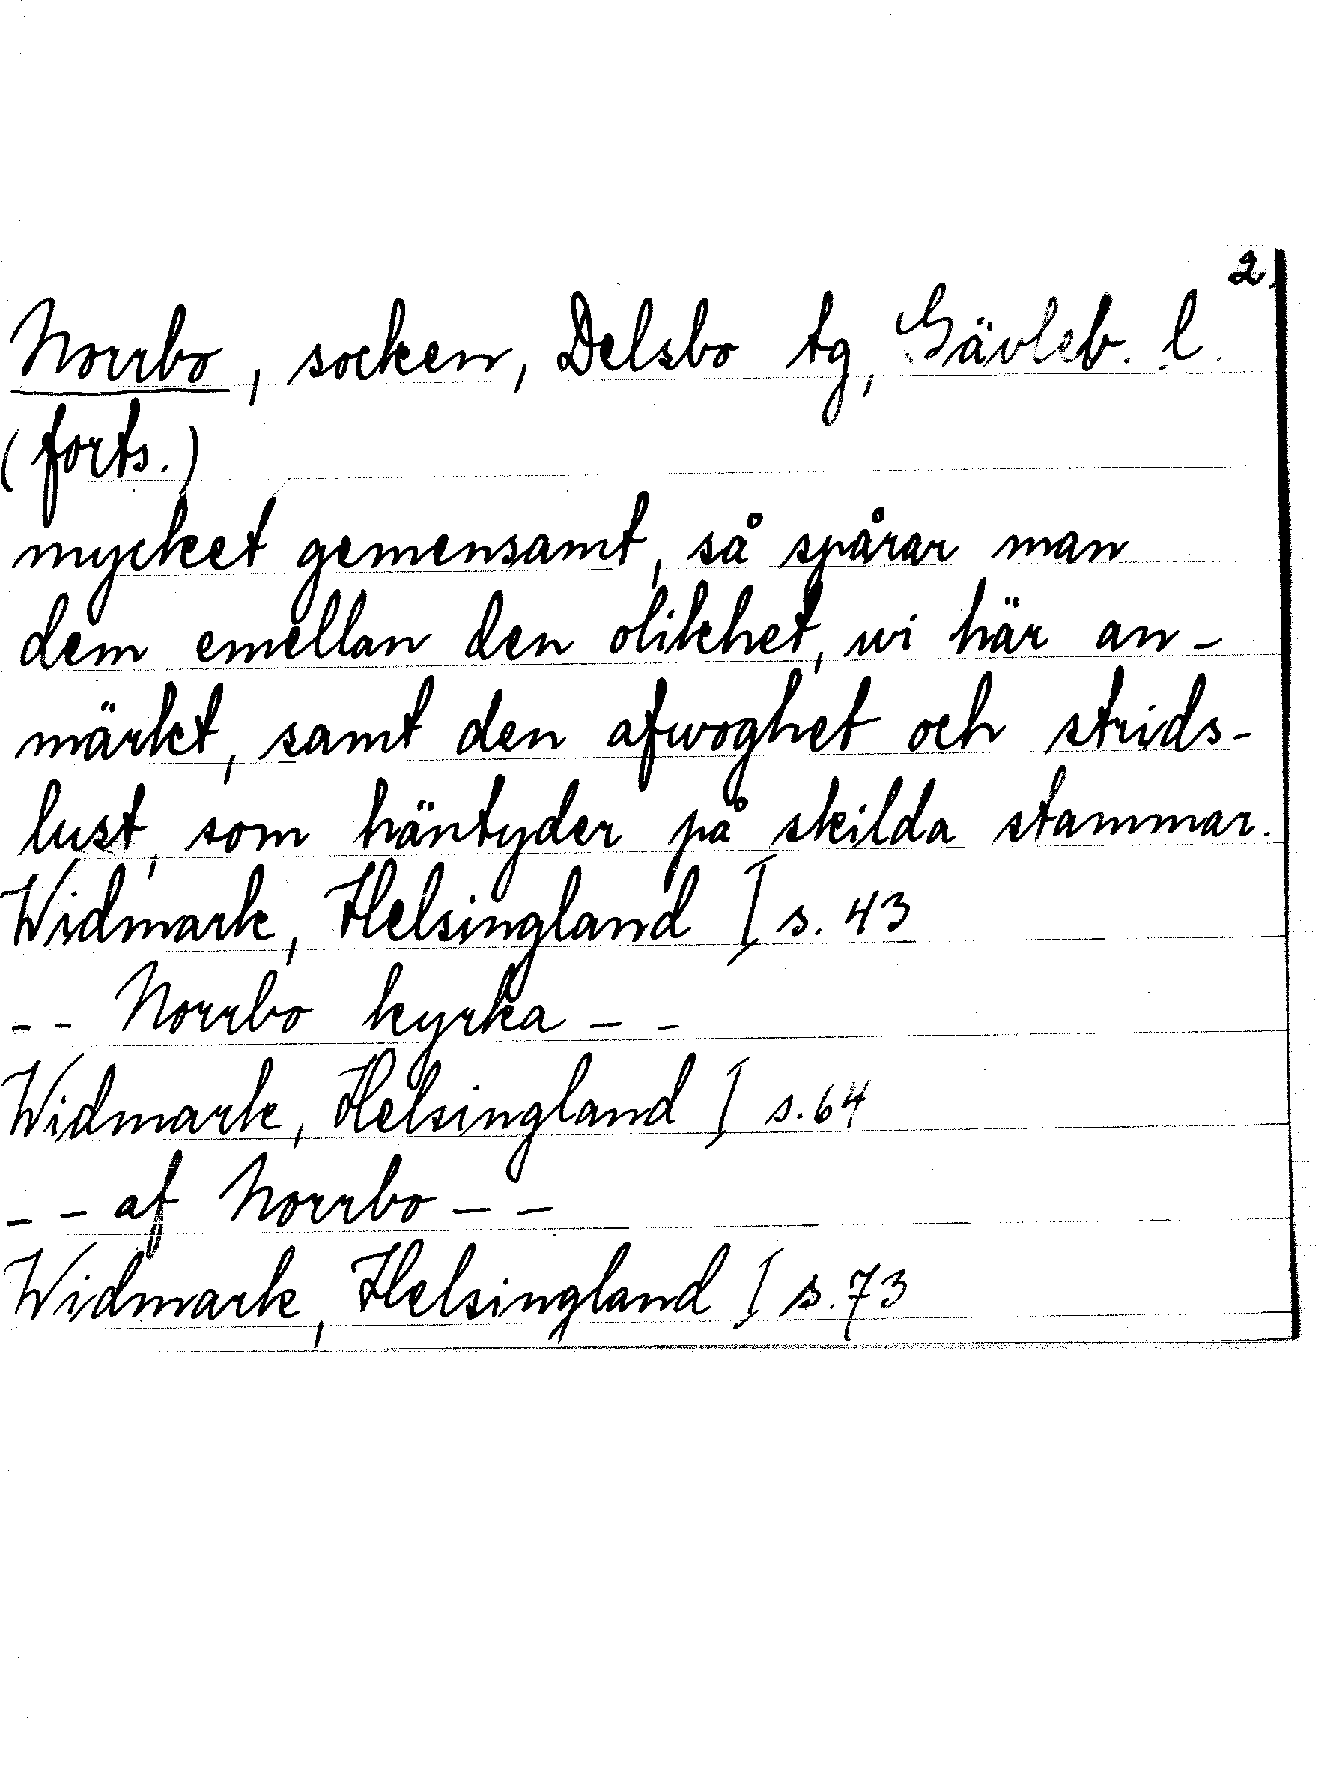 2.
Norrbo, socken, Delsbo tg, Gävleb. l.
(forts.)
mycket gemensamt, så spårar man
dem emellan den olikhet, wi här an-
märkt, samt den afwoghet och strids-
lust, som häntyder på skilda stammar.
Widmark, Helsingland I s. 43
-- Norrbo kyrka --
Widmark, Helsingland I s. 64
-- af Norrbo --
Widmark, Helsingland I s. 73